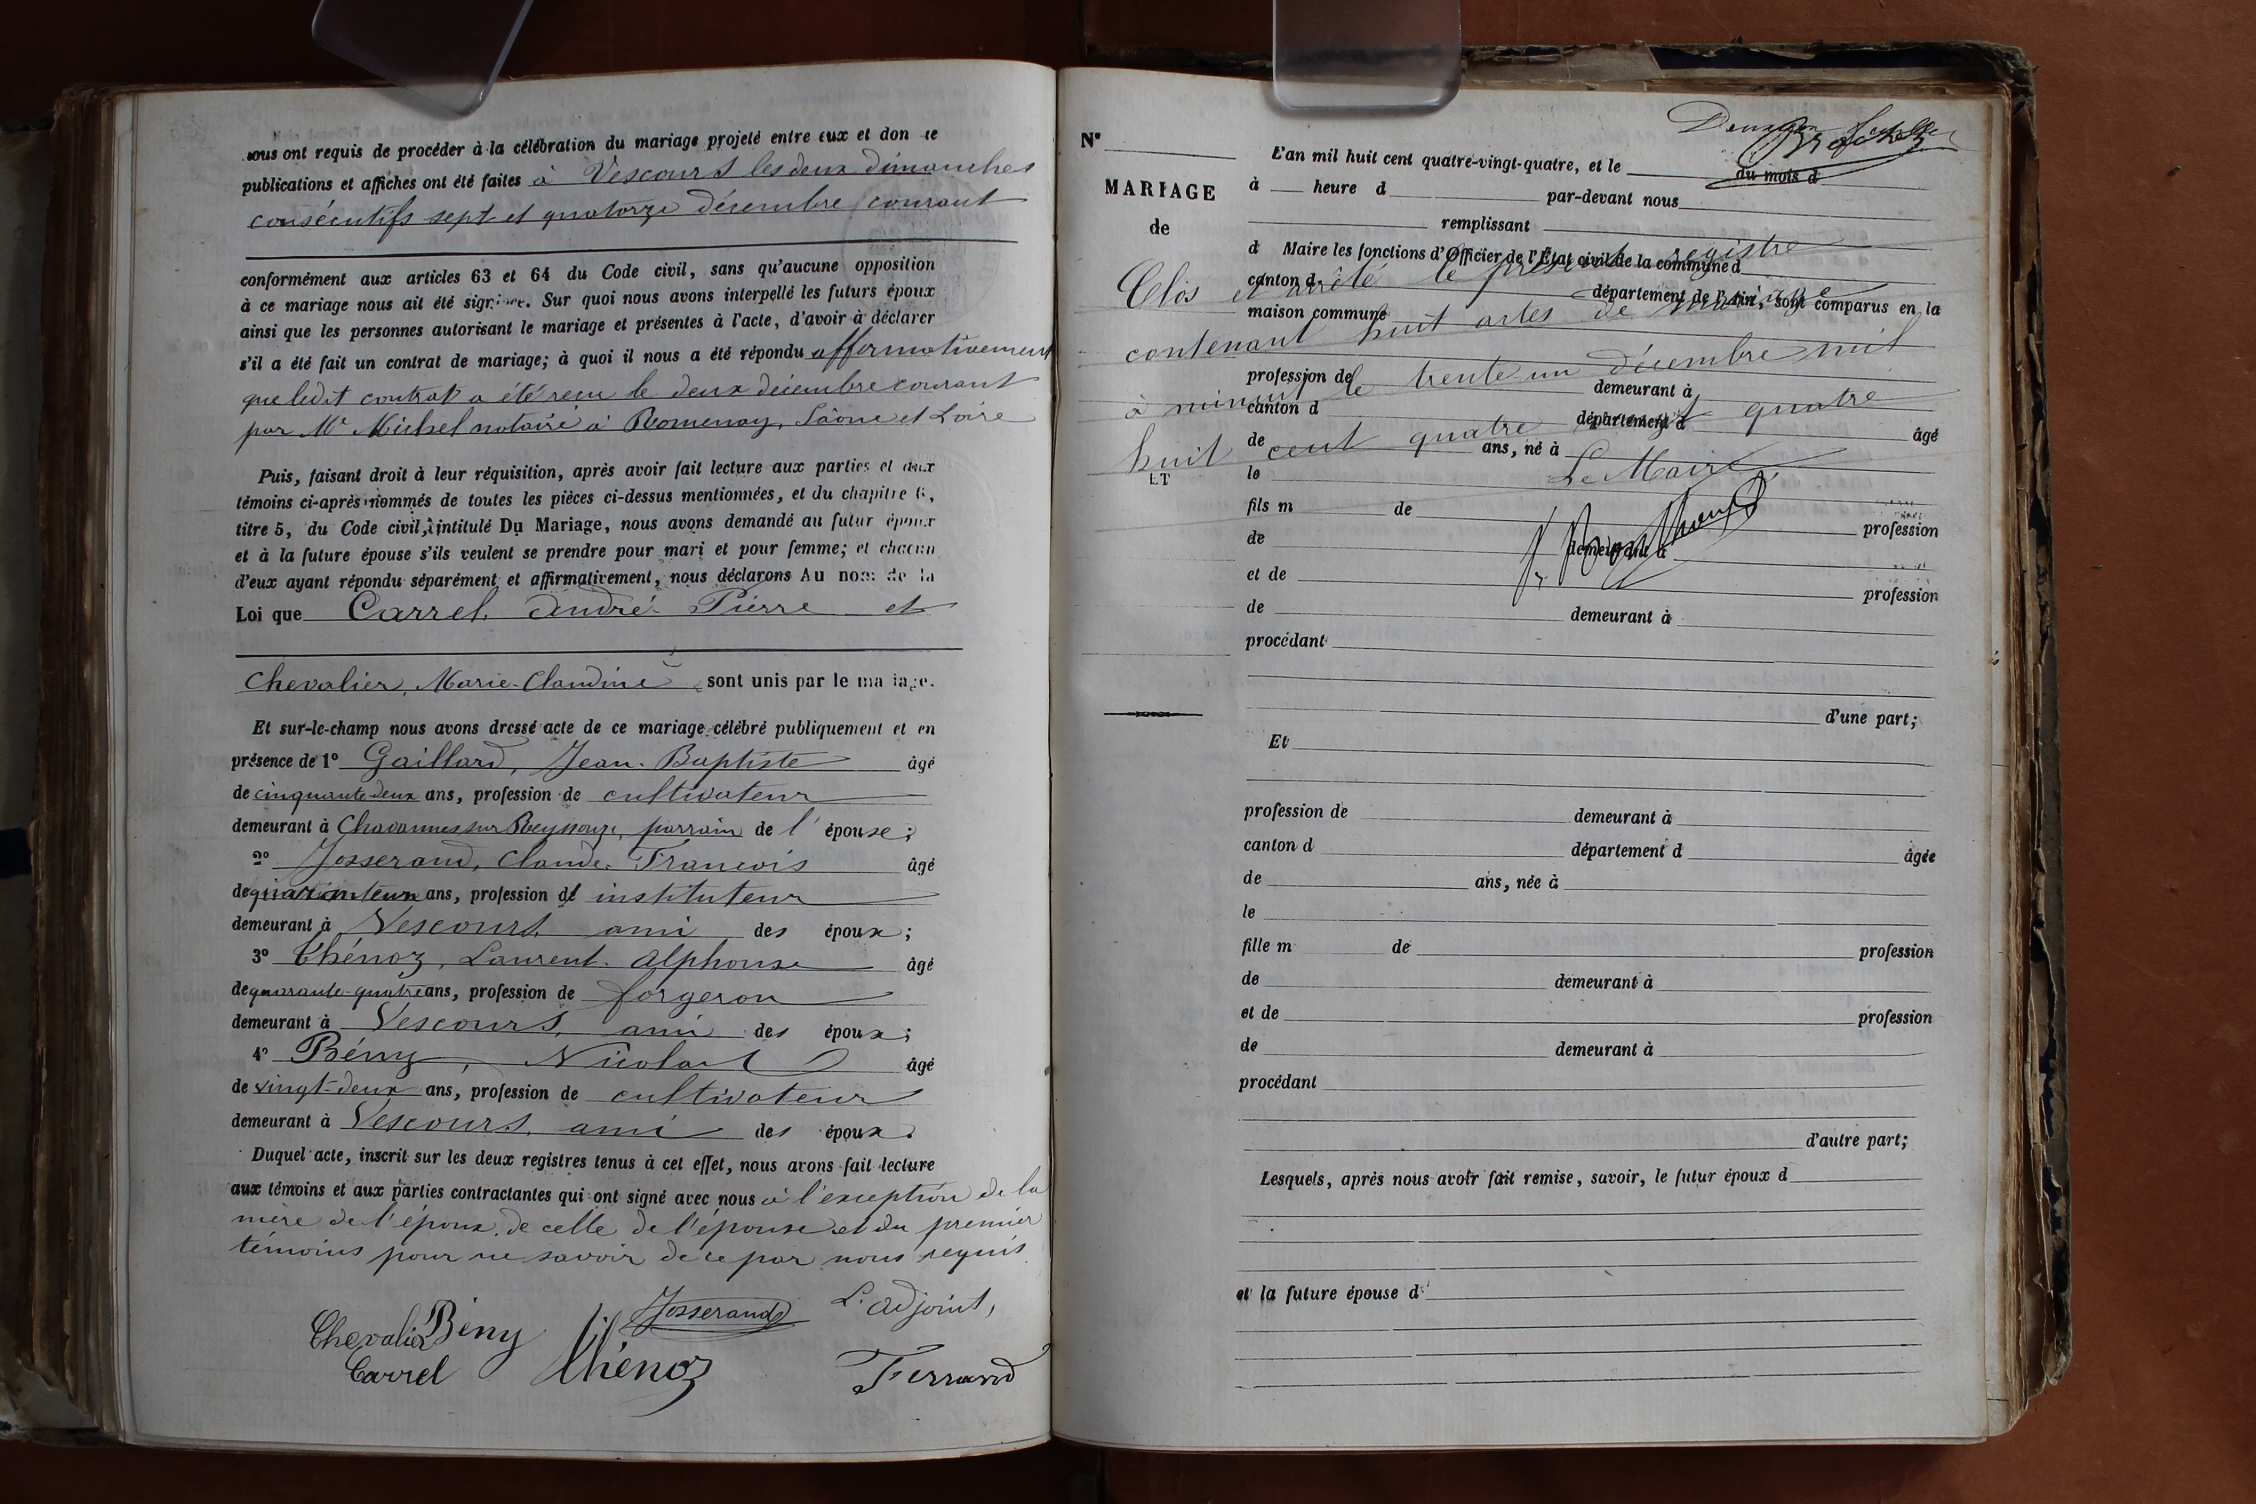 nous ont requis de procéder à la célébration du mariage projeté entre eux et don
publications et affiches ont été faites à Vescours les deux dimanches
consécutifs sept et quatorze décembre courant
conformément aux articles 63 et 64 du Code civil, sans qu'aucune opposition
à ce mariage nous ait été signifiée. Sur quoi nous avons interpellé les futurs époux
ainsi que les personnes autorisant le mariage et présentes à l'acte, d'avoir à déclarer
s'il a été fait un contrat de mariage; à quoi il nous a été répondu affirmativement
que ledit contrat a été reçu le deux décembre courant
par Me Michel notaire à Romenay, Saône et Loire
Puis, faisant droit à leur réquisition, après avoir fait lecture aux parties et aux
témoins ci-après nommés de toutes les pièces ci-dessus mentionnées, et du chapitre 6,
titre 5, du Code civil, intitulé Du Mariage, nous avons demandé au futur époux
et à la future épouse s'ils veulent se prendre pour mari et pour femme; et chacun
d'eux ayant répondu séparément et affirmativement, nous déclarons Au nom de la
Loi que Carrel, André-Pierre et
Chevalier, Marie-Claudine sont unis par le mariage.
Et sur-le-champ nous avons dressé acte de ce mariage célébré publiquement et en
présence de 1° Gaillard, Jean-Baptiste âgé
de cinquante-deux ans, profession de cultivateur
demeurant à Chavannes sur Reyssouze, parrain de l'épouse;
2° Josserand, Claude-François âgé
de quarante un ans, profession d' instituteur
demeurant à Vescours, ami des époux;
3° Thénoz, Laurent-Alphonse âgé
de quarante-quatre ans, profession de forgeron
demeurant à Vescours, ami des époux;
4° Bény, Nicolas âgé
de vingt-deux ans, profession de cultivateur
demeurant à Vescours, ami des époux.
Duquel acte, inscrit sur les deux registres tenus à cet effet, nous avons fait lecture
aux témoins et aux parties contractantes qui ont signé avec nous à l'exception de la
mère de l'époux, de celle de l'épouse et du premier
témoins pour ne savoir de ce par nous requis
Josserand L'adjoint,
Chevalier Bény
Carrel Thénoz Ferrand
N°
MARIAGE
de
ET
L'an mil huit cent quatre-vingt-quatre, et le du mois d
à heure d par-devant nous
remplissant
d Maire les fonctions d'Officier de l'État civil de la commune d
canton d département de l'Ain, sont comparus en la
maison commune
Clos et arrêté le présent registre
contenant huit actes de mariage
à minuit le trente-un décembre mil
huit cent quatre vingt quatre
Le Maire
profession de demeurant à
canton d département d âgé
de ans, né à
le
fils m de profession
de demeurant à
et de profession
de demeurant à
procédant
d'une part;
Et
profession de demeurant à
canton d département d âgée
de ans, née à
le
fille m de profession
de demeurant à
et de profession
de demeurant à
procédant
d'autre part;
Lesquels, après nous avoir fait remise, savoir, le futur époux d
et la future épouse d